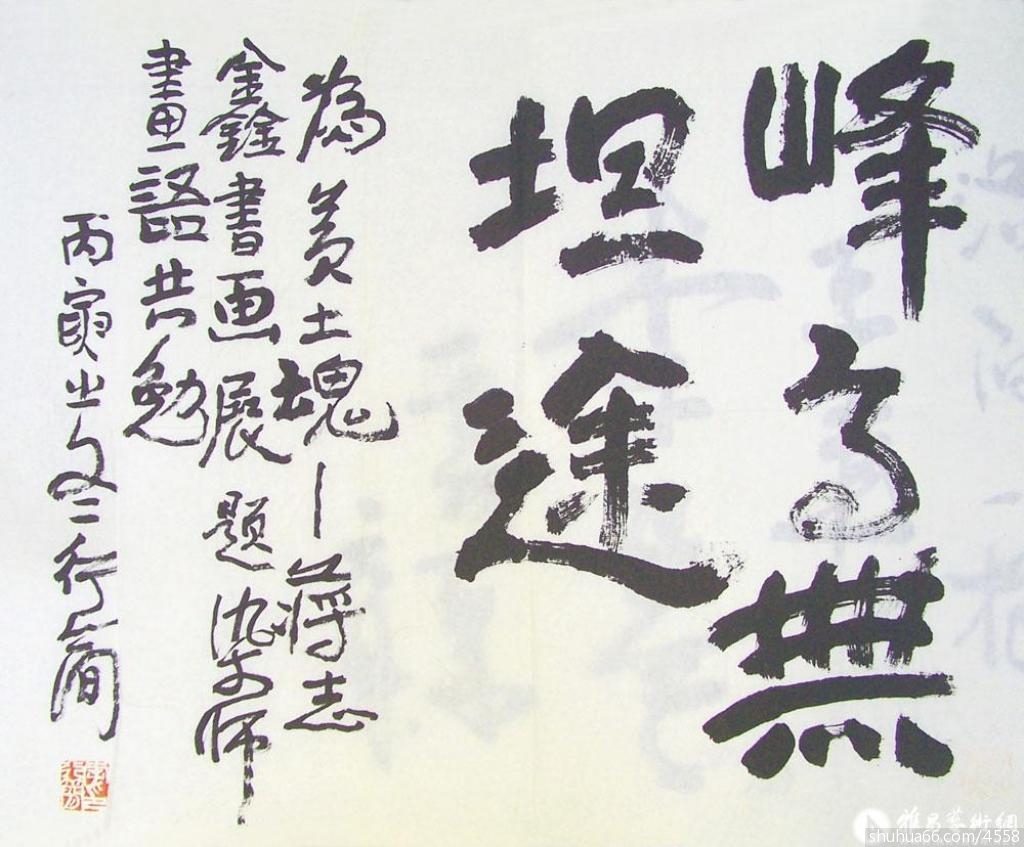 峰高無
坦途
為黄土魂—蔣志
鑫書画展題師
畫語共勉
丙寅之冬行簡
雅昌藝術網
shuhua66.com/4558